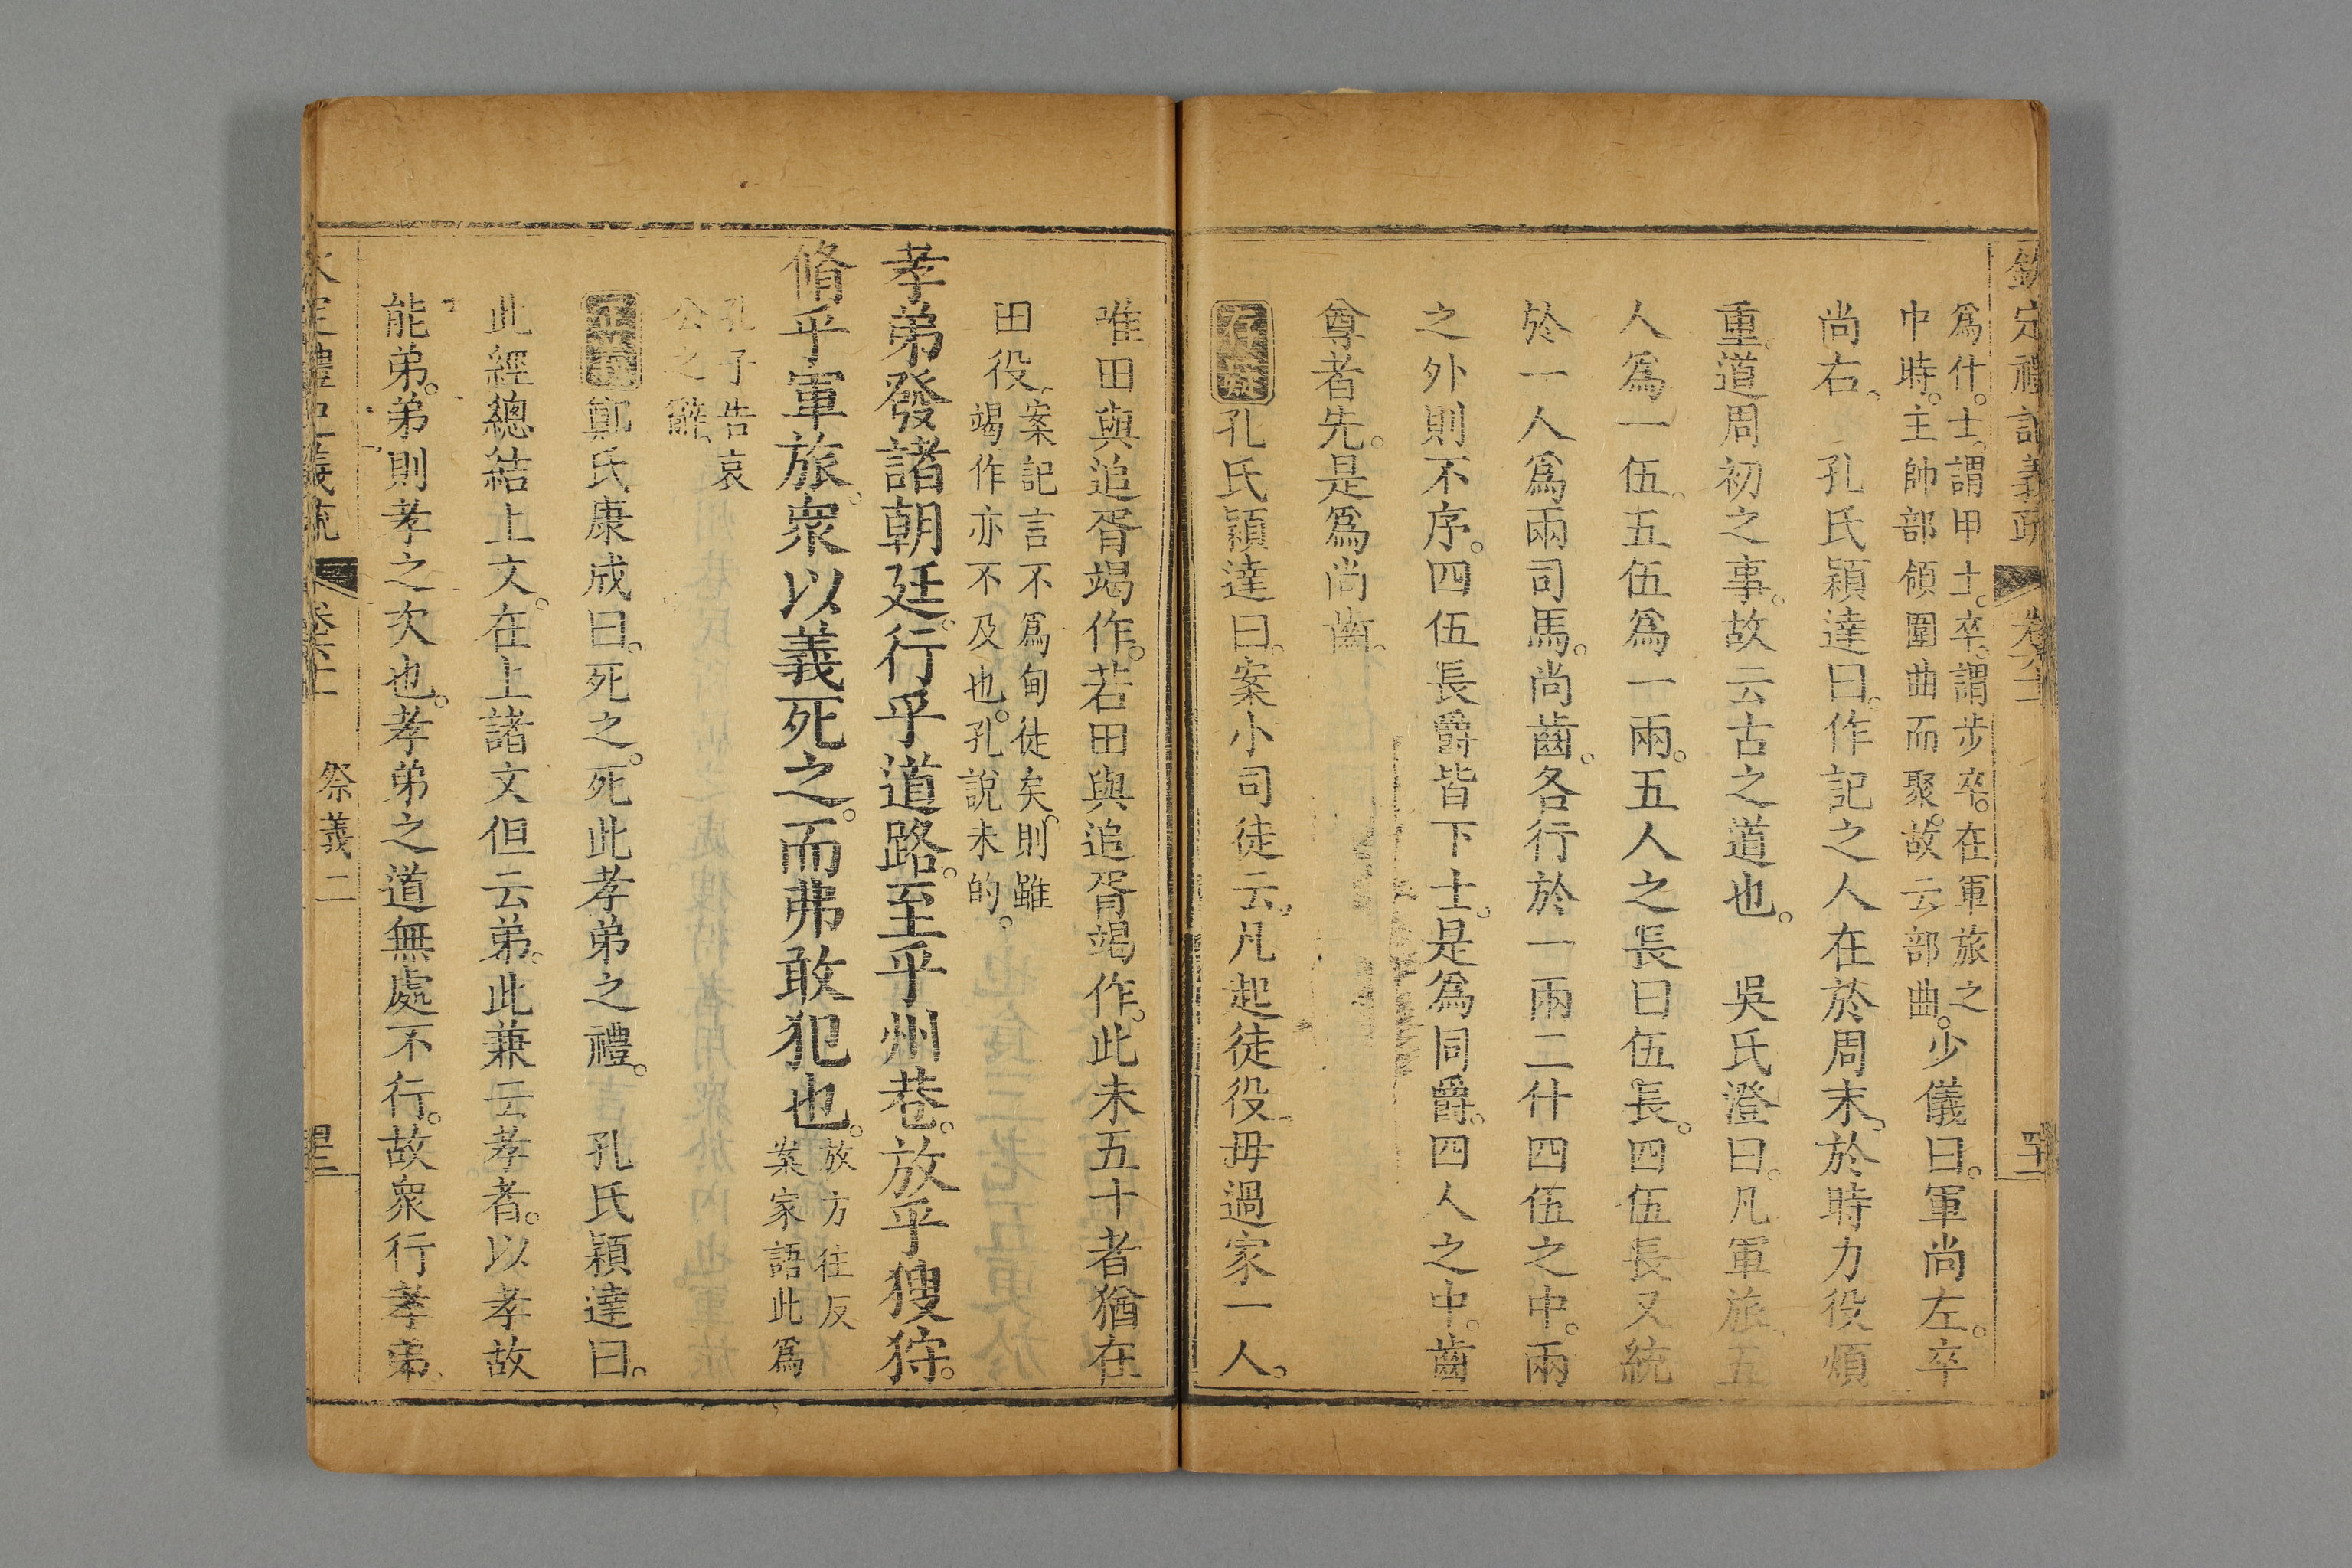 欽定禮記義疏 卷六十二 四十二
爲什。士。謂甲士。卒。謂步卒。在軍旅之
中時。主帥部領團曲而聚。故云部曲。少儀曰。軍尚左。卒
尚右、 孔氏穎達曰。作記之人在於周末、於時力役煩
重。道周初之事。故云古之道也。 吳氏澄曰。凡軍旅、五
人爲一伍。五伍爲一兩。五人之長曰伍長。四伍長又統
於一人爲兩司馬。尚齒。各行於一兩二什四伍之中。兩
之外則不序。四伍長爵皆下士。是爲同爵。四人之中。齒
尊者先。是爲尚齒。
存疑孔氏穎達曰。案小司徒云。凡起徒役、毋過家一人。
唯田與追胥竭作。若田與追胥竭作。此未五十者猶在
田役、案記言不爲甸徒矣。則雖
竭作亦不及也。孔說未的。
孝弟發諸朝廷。行乎道路。至乎州巷。放乎獀狩。
脩乎軍旅。衆以義死之。而弗敢犯也。放方往反
案家語此爲
孔子告哀
公之辭、
正義鄭氏康成曰。死之。死此孝弟之禮。 孔氏穎達曰。
此經總結上文。在上諸文但云弟。此兼云孝者。以孝故
能弟。弟則孝之次也。孝弟之道無處不行。故衆行孝弟、
定禮記義疏 祭義二